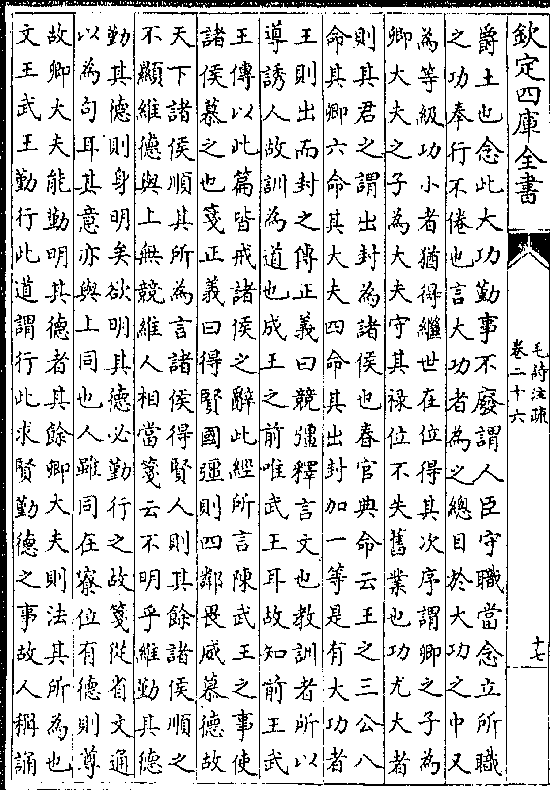 欽定四庫全書
毛詩注疏
卷二十六
十七
爵土也念此大功勤事不廢謂人臣守職當念立所職
之功奉行不倦也言大功者為之總目於大功之中又
為等級功小者猶得繼世在位得其次序謂卿之子為
卿大夫之子為大夫守其禄位不失舊業也功尤大者
則其君之謂出封為諸侯也春官典命云王之三公八
命其卿六命其大夫四命其出封加一等是有大功者
王則出而封之傳正義曰競彊釋言文也教訓者所以
導誘人故訓為道也成王之前唯武王耳故知前王武
王傳以此篇皆戒諸侯之辭此經所言陳武王之事使
諸侯慕之也箋正義曰得賢國彊則四鄰畏威慕德故
天下諸侯順其所為言諸侯得賢人則其餘諸侯順之
不顯維德與上無競維人相當箋云不明乎維勤其德
勤其德則身明矣欲明其德必勤行之故箋從省文通
以為句耳其意亦與上同也人雖同在寮位有德則尊
故卿大夫能勤明其德者其餘卿大夫則法其所為也
文王武王勤行此道謂行此求賢勤德之事故人稱誦